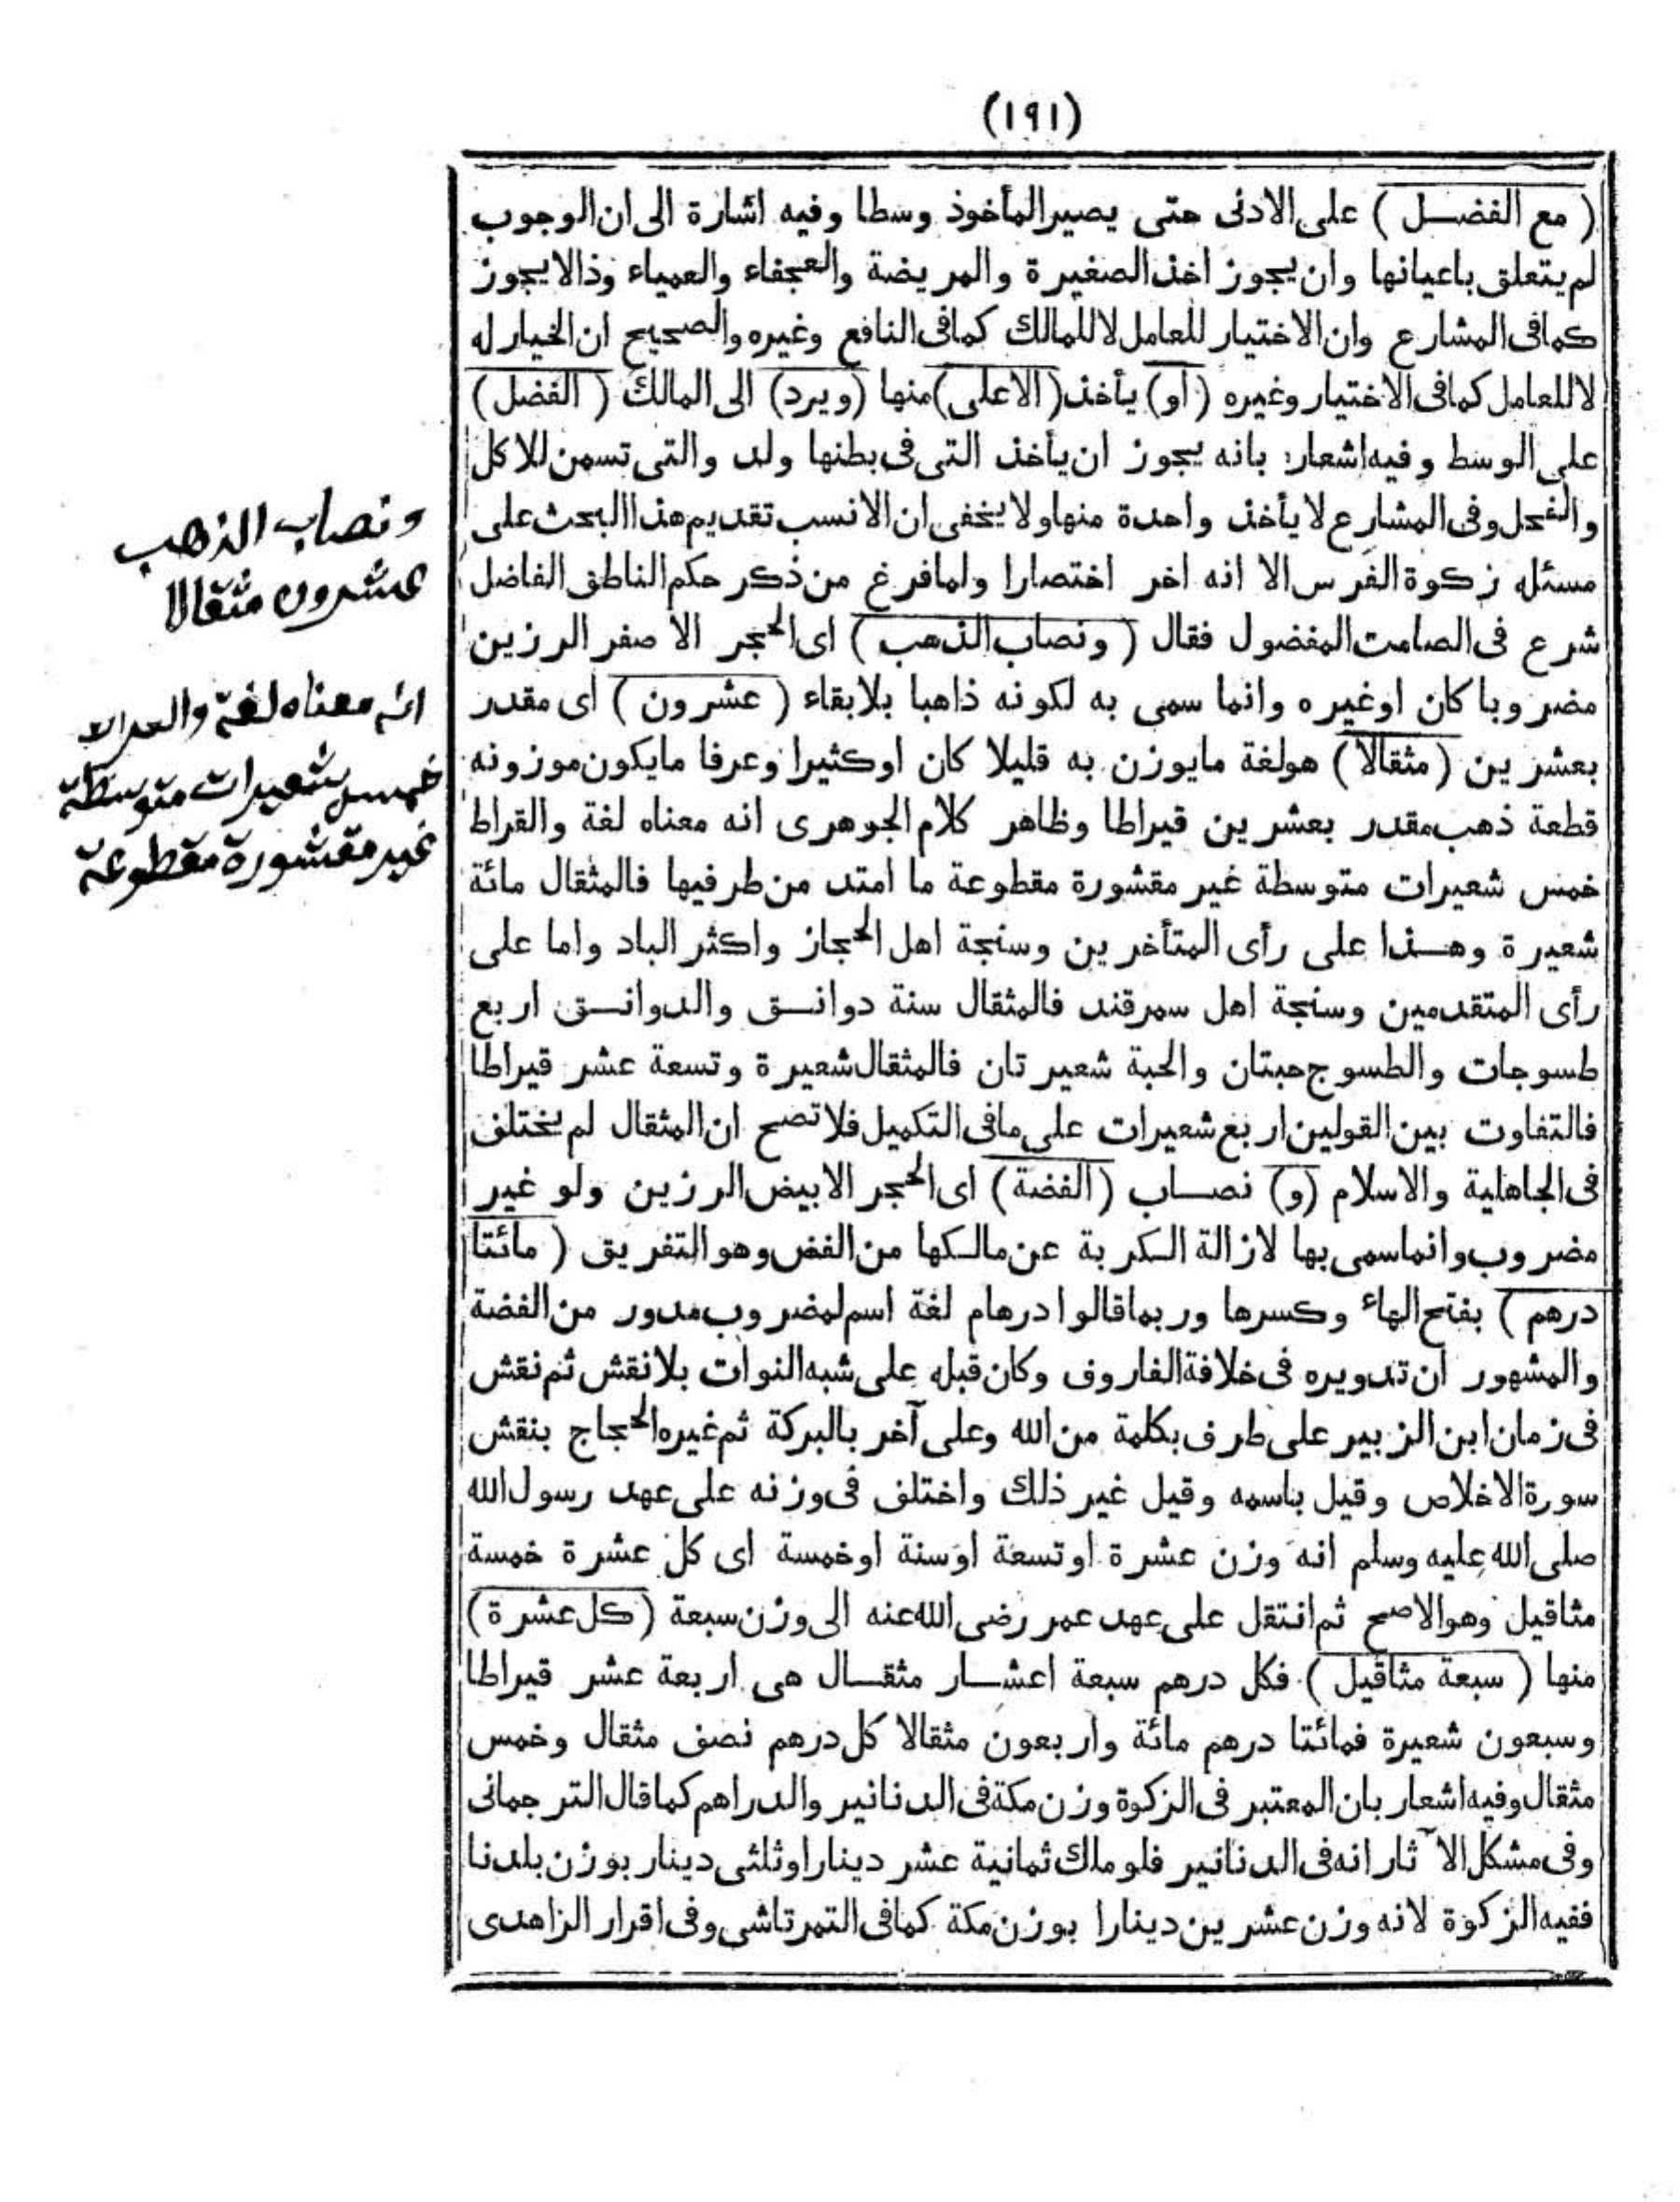 (١٩١)
( مع الفضـــل ) على الادنى حتى يصير المأخوذ وسطا وفيه اشارة الى ان الوجوب
لم يتعلق باعيانها وان يجوز اخذ الصغيرة والمريضة والعجفاء والعمياء وذا لا يجوز
كما فى المشارع وان الاختيار للعامل لا للمالك كما فى النافع وغيره والصحيح ان الخيار له
لا للعامل كما فى الاختيار وغيره ( او ) يأخذ ( الاعلى ) منها ( ويرد ) الى المالك ( الفضل )
على الوسط وفيه اشعار بانه يجوز ان يأخذ التى فى بطنها ولد والتى تسمن للاكل
والفحل وفى المشارع لا يأخذ واحدة منها ولا يخفى ان الانسب تقديم هذا البحث على
مسئله زكوة الفرس الا انه اخر اختصارا ولما فرغ من ذكر حكم الناطق الفاضل
شرع فى الصامت المفضول فقال ( ونصاب الذهب ) اى الحجر الاصفر الرزين
مضروبا كان اوغيره وانما سمى به لكونه ذاهبا بلا بقاء ( عشرون ) اى مقدر
بعشرين ( مثقالا ) هو لغة مايوزن به قليلا كان اوكثيرا وعرفا مايكون موزونه
قطعة ذهب مقدر بعشرين قيراطا وظاهر كلام الجوهرى انه معناه لغة والقراط
خمس شعيرات متوسطة غير مقشورة مقطوعة ما امتد من طرفيها فالمثقال مائة
شعيرة وهـــذا على رأى المتأخرين وسنجة اهل الحجاز واكثر الباد واما على
رأى المتقدمين وسنجة اهل سمرقند فالمثقال سنة دوانــق والدوانــق اربع
طسوجات والطسوج حبتان والحبة شعيرتان فالمثقال شعيرة وتسعة عشر قيراطا
فالتفاوت بين القولين اربع شعيرات على مافى التكميل فلا تصح ان المثقال لم يختلف
فى الجاهلية والاسلام ( و ) نصـــاب ( الفضة ) اى الحجر الابيض الرزين ولو غير
مضروب وانما سمى بها لازالة الكربة عن مالكها من الفض وهو التفريق ( مائتا
درهم ) بفتح الهاء وكسرها وربما قالوا درهام لغة اسم لمضروب مدور من الفضة
والمشهور ان تدويره فى خلافة الفاروق وكان قبله على شبه النوات بلا نقش ثم نقش
فى زمان ابن الزبير على طرف بكلمة من الله وعلى آخر بالبركة ثم غيره الحجاج بنقش
سورة الاخلاص وقيل باسمه وقيل غير ذلك واختلف فى وزنه على عهد رسول الله
صلى الله عليه وسلم انه وزن عشرة اوتسعة اوسنة اوخمسة اى كل عشرة خمسة
مثاقيل وهو الاصح ثم انتقل على عهد عمر رضى الله عنه الى وزن سبعة ( كل عشرة )
منها ( سبعة مثاقيل ) فكل درهم سبعة اعشـــار مثقـــال هى اربعة عشر قيراطا
وسبعون شعيرة فمائتا درهم مائة واربعون مثقالا كل درهم نصف مثقال وخمس
مثقال وفيه اشعار بان المعتبر فى الزكوة وزن مكة فى الدنانير والدراهم كما قال الترجمانى
وفى مشكل الآثار انه فى الدنانير فلو ملك ثمانية عشر دينارا وثلثى دينار بوزن بلدنا
ففيه الزكوة لانه وزن عشرين دينارا بوزن مكة كما فى التمرتاشى وفى اقرار الزاهدى
ونصاب الذهب
عشرون مثقالا
انه معناه لغة
خمس شعيرات متوسطة
غير مقشورة مقطوعة